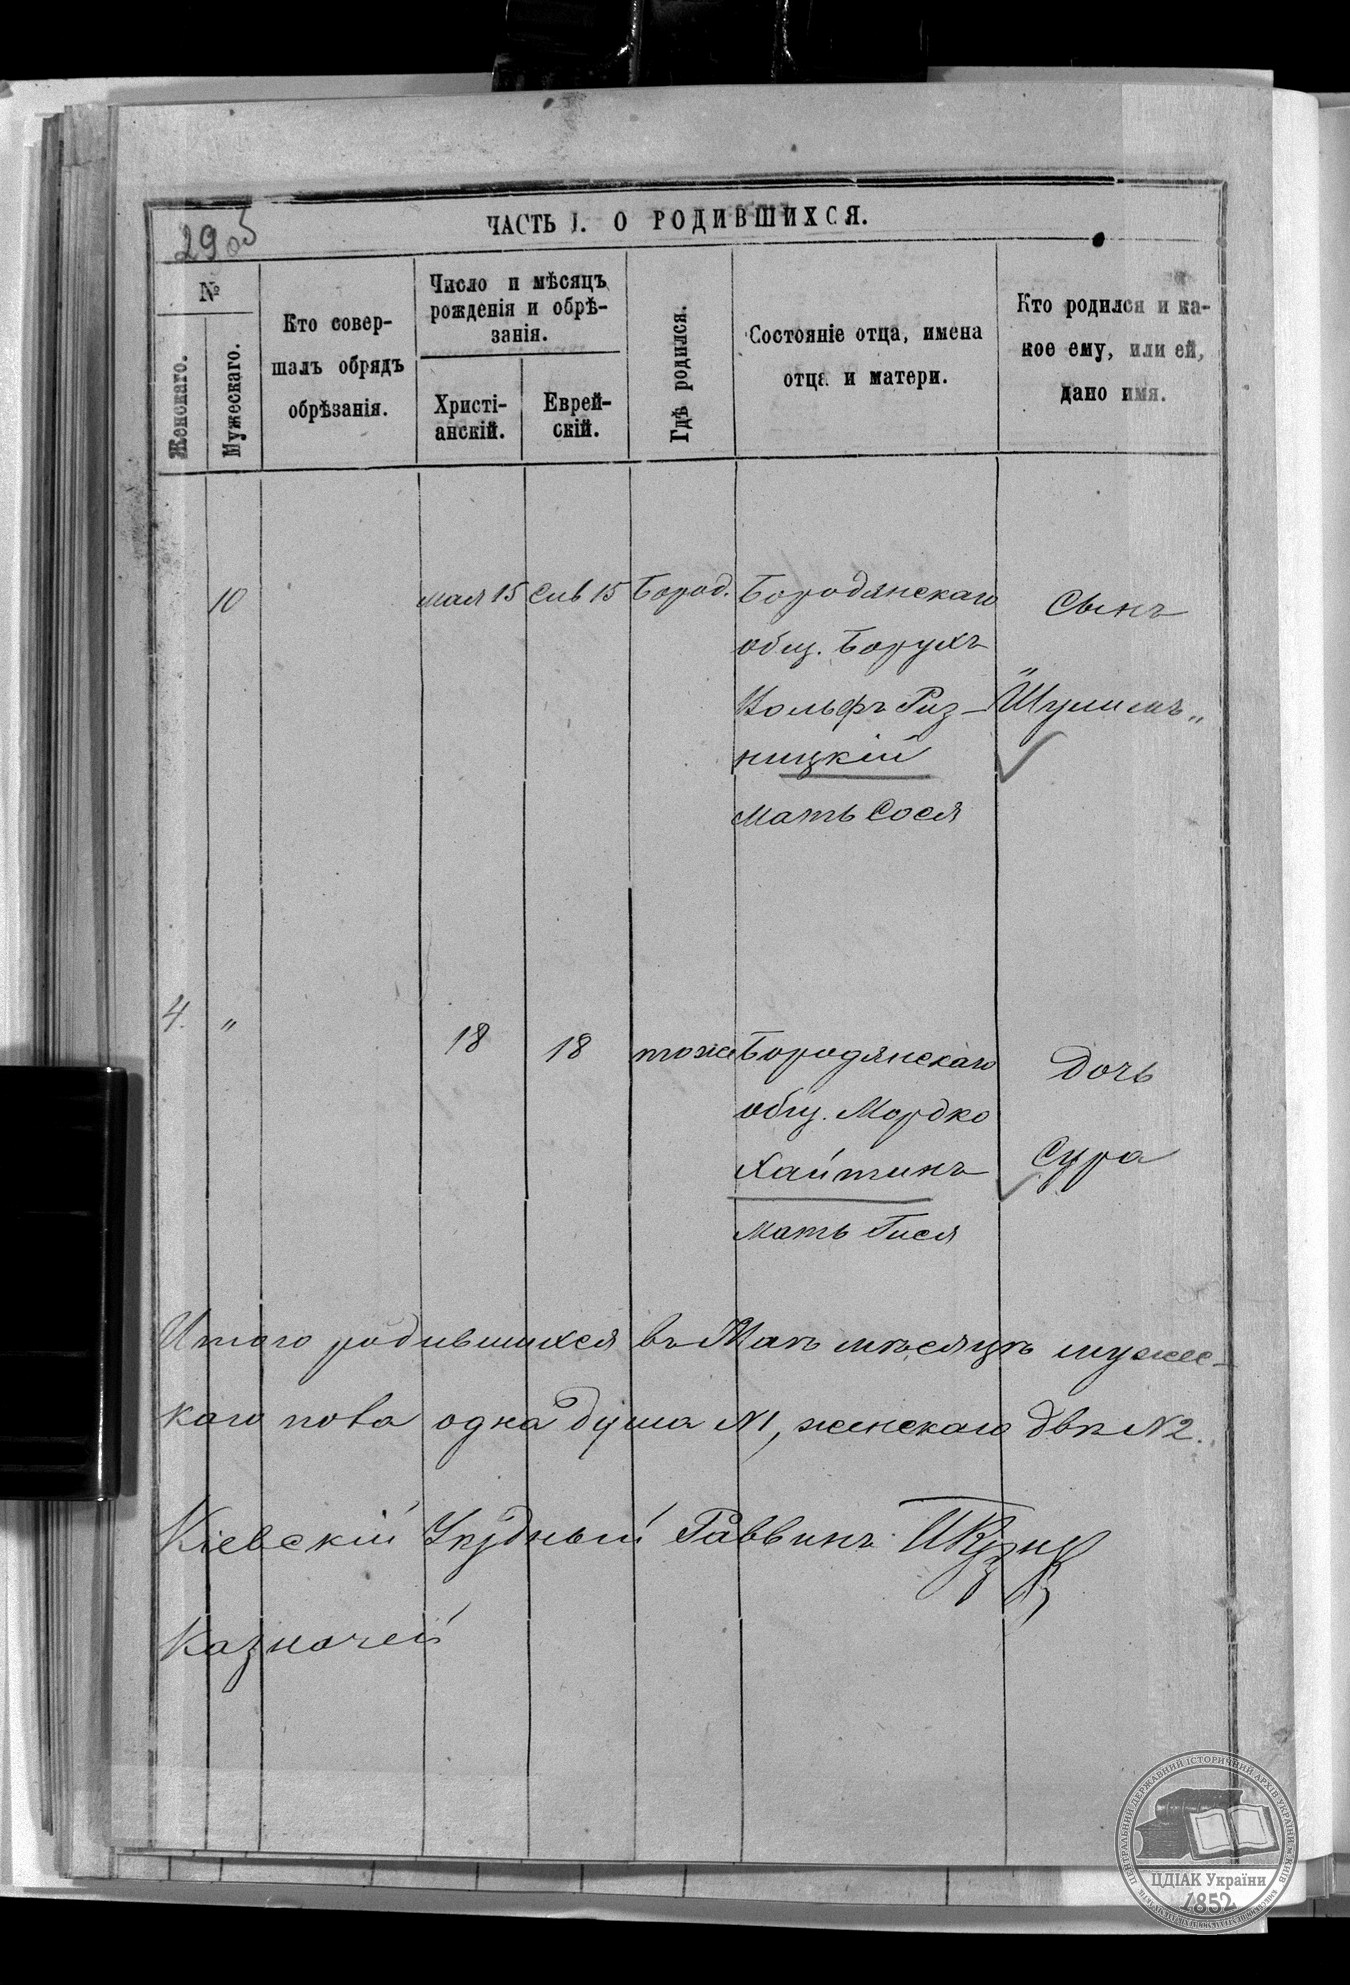 ЧАСТЬ I. О РОДИВШИХСЯ.
№
Женскаго.
Мужескаго.
Кто совер-
шалъ обрядъ
обрѣзанія.
Число и мѣсяцъ
рожденія и обрѣ-
занія.
Христі-
анскій.
Еврей-
скій.
Гдѣ родился.
Состояніе отца, имена
отца и матери.
Кто родился и ка-
кое ему, или ей,
дано имя.
10
Мая 15
Сив 15
Бород.
Бородянскаго
общ. Борухъ
Вольфъ Риз-
ницкій
Мать Сося
Сынъ
"Шулимъ„
4.
"
18
18
тоже
Бородянскаго
общ. Мордко
Хайтинъ
Мать Гися
Дочь
Сура
Итого родившихся въ Маѣ мѣсяцѣ мужес-
каго пола одна душа №1, женскаго двѣ №2.
Кіевскій Уѣздный Раввинъ
Казначей
ЦЕНТРАЛЬНИЙ ДЕРЖАВНИЙ ІСТОРИЧНИЙ АРХІВ УКРАЇНИ, М. КИЇВ
ЦДІАК України
1852